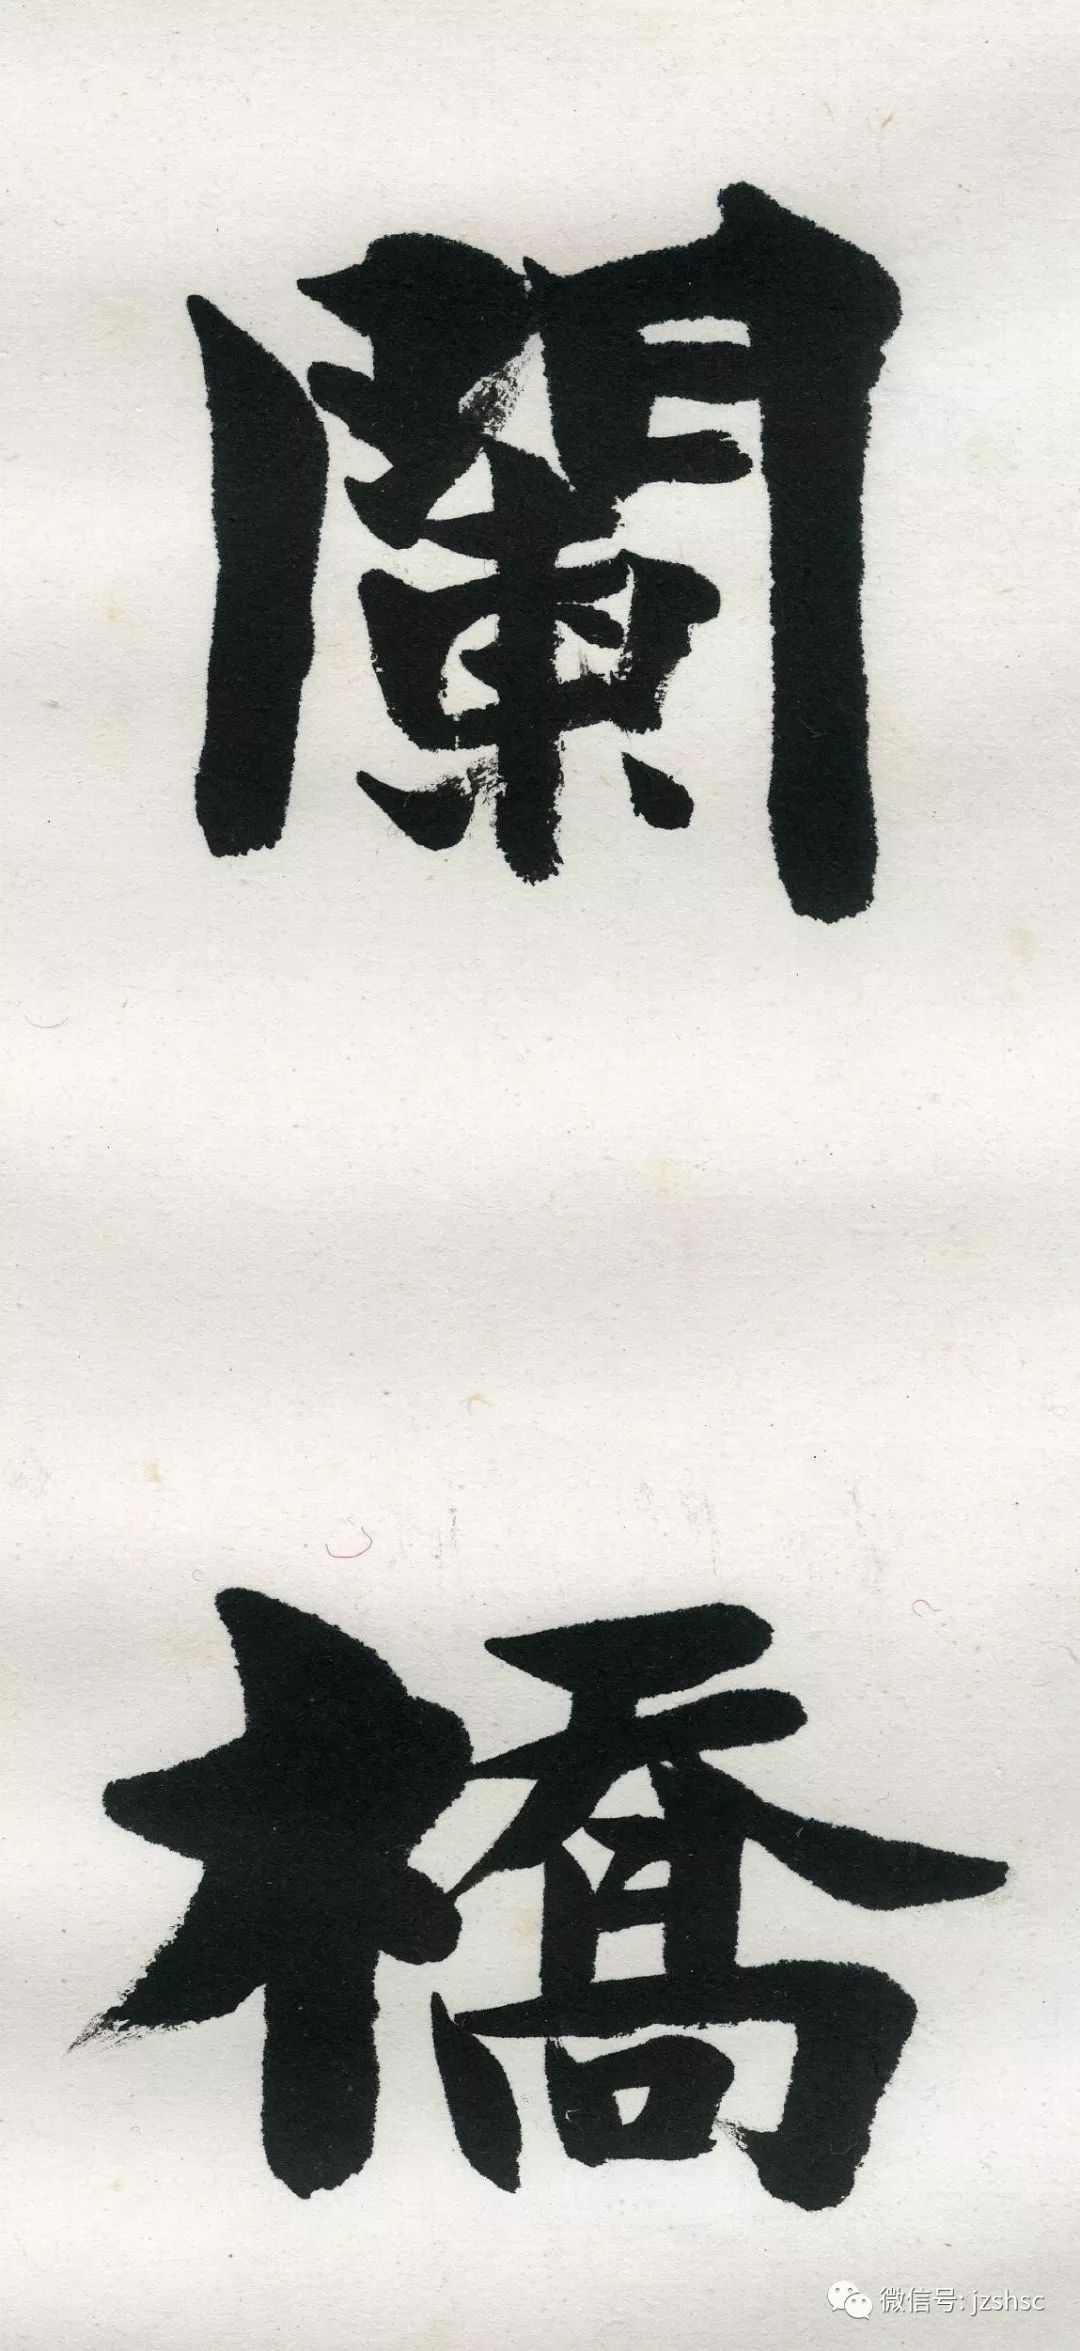 闌
橋
微信号: jzshsc